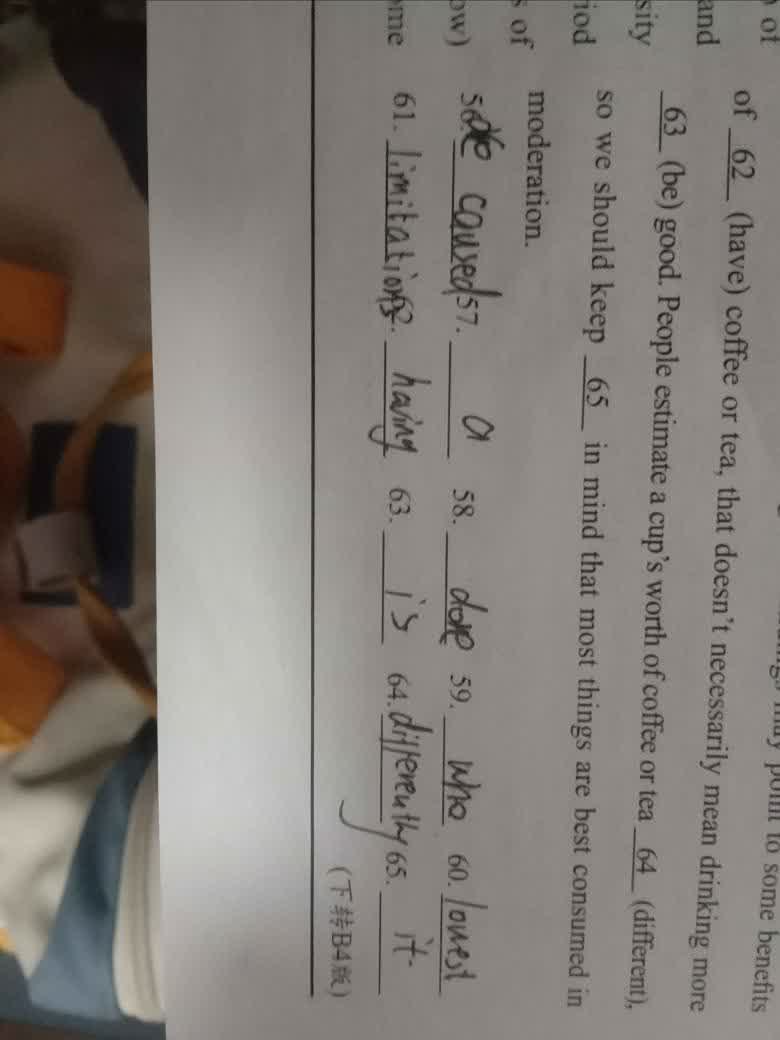 of
point to some benefits
and
of 62 (have) coffee or tea, that doesn't necessarily mean drinking more
sity
63 (be) good. People estimate a cup's worth of coffee or tea 64 (different),
iod
so we should keep 65 in mind that most things are best consumed in
of
moderation.
ow)
56. caused 57. a 58. done 59. who 60. lowest
ome
61. limitations 62. having 63. is 64. differently 65. it
(下转B4版)